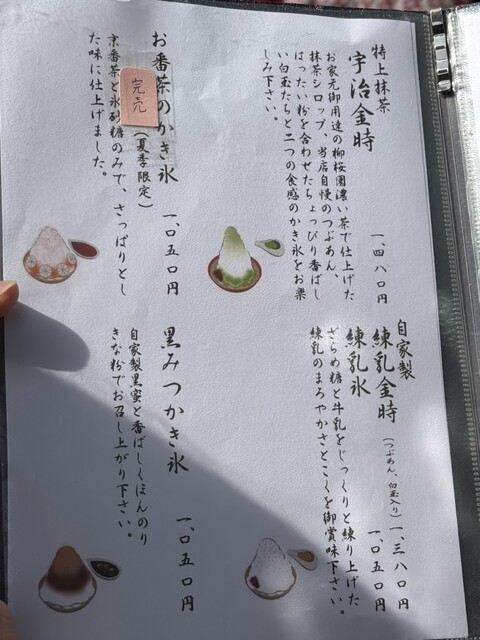 特上抹茶
宇治金時
お家元御用達の柳桜園濃い茶で仕上げた
抹茶シロップ、当店自慢のつぶあん、
はったい粉を合わせたちょっぴり香ばし
い白玉たちと二つの食感のかき氷をお楽
しみ下さい。
一、四八〇円
お番茶のかき氷
(夏季限定)
完売
京番茶と氷砂糖のみで、さっぱりとし
た味に仕上げました。
一、〇五〇円
自家製
練乳金時
(つぶあん、白玉入り)
一、三八〇円
練乳氷
一、〇五〇円
ざらめ糖と牛乳をじっくりと練り上げた
練乳のまろやかさとこくを御賞味下さい。
黒みつかき氷
自家製黒蜜と香ばしくほんのり
きな粉でお召し上がり下さい。
一、〇五〇円